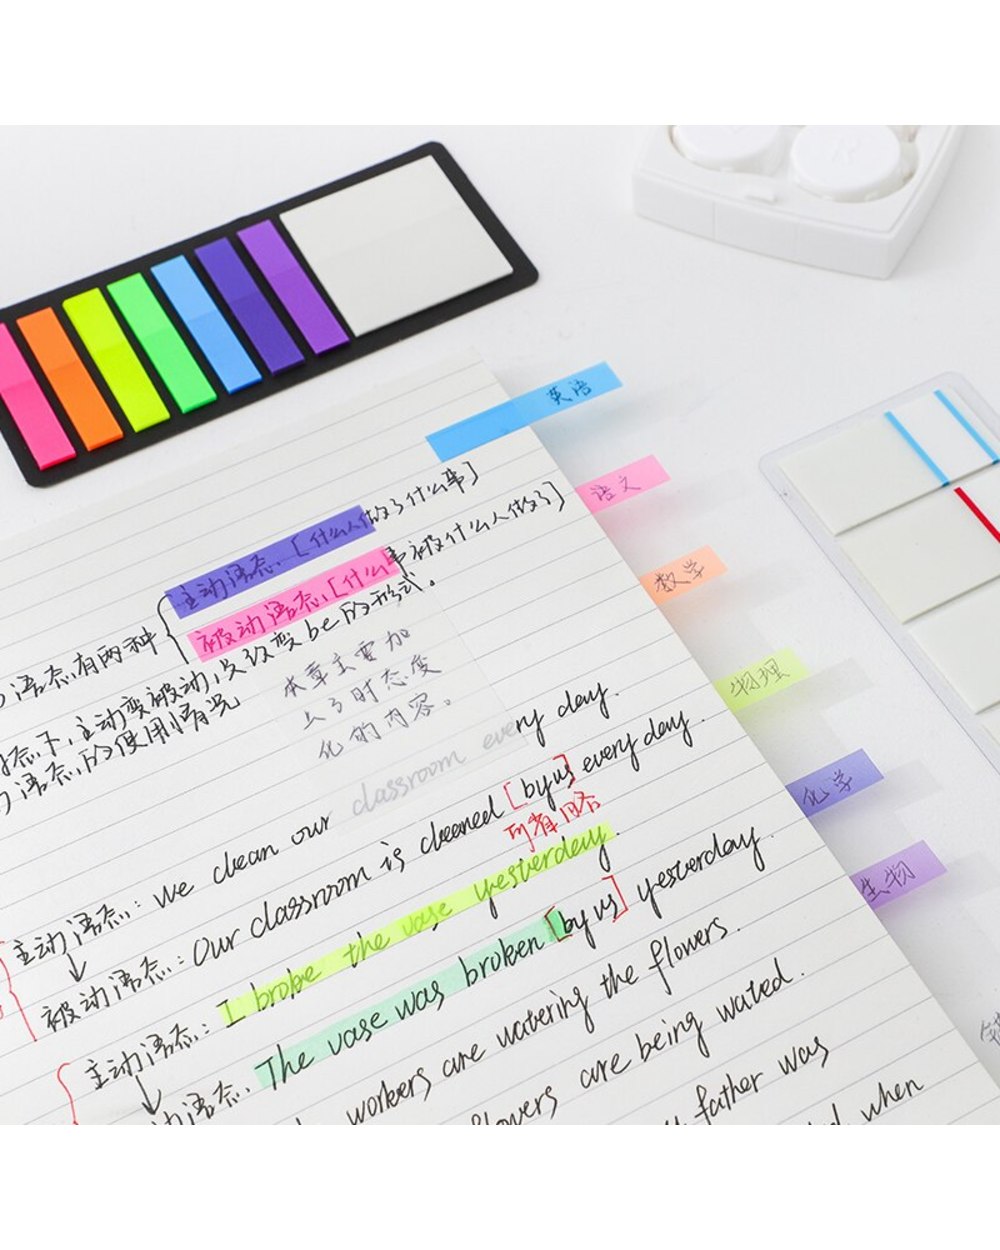 英语
语文
数学
物理
化学
生物
主动语态.[什么人做了什么事]
语态有两种
被动语态.[什么事被什么人做了]
态下,主动变被动,只改变be的形式.
语态的使用情况
本章主要加
入了时态变
化的内容。
主动语态: We clean our classroom every day.
被动语态: Our classroom is cleened [by us] every day.
可省略
主动语态: I broke the vase yesterday.
动语态. The vase was broken [by us] yesterday.
workers are watering the flowers.
flowers are being wated.
father was
when